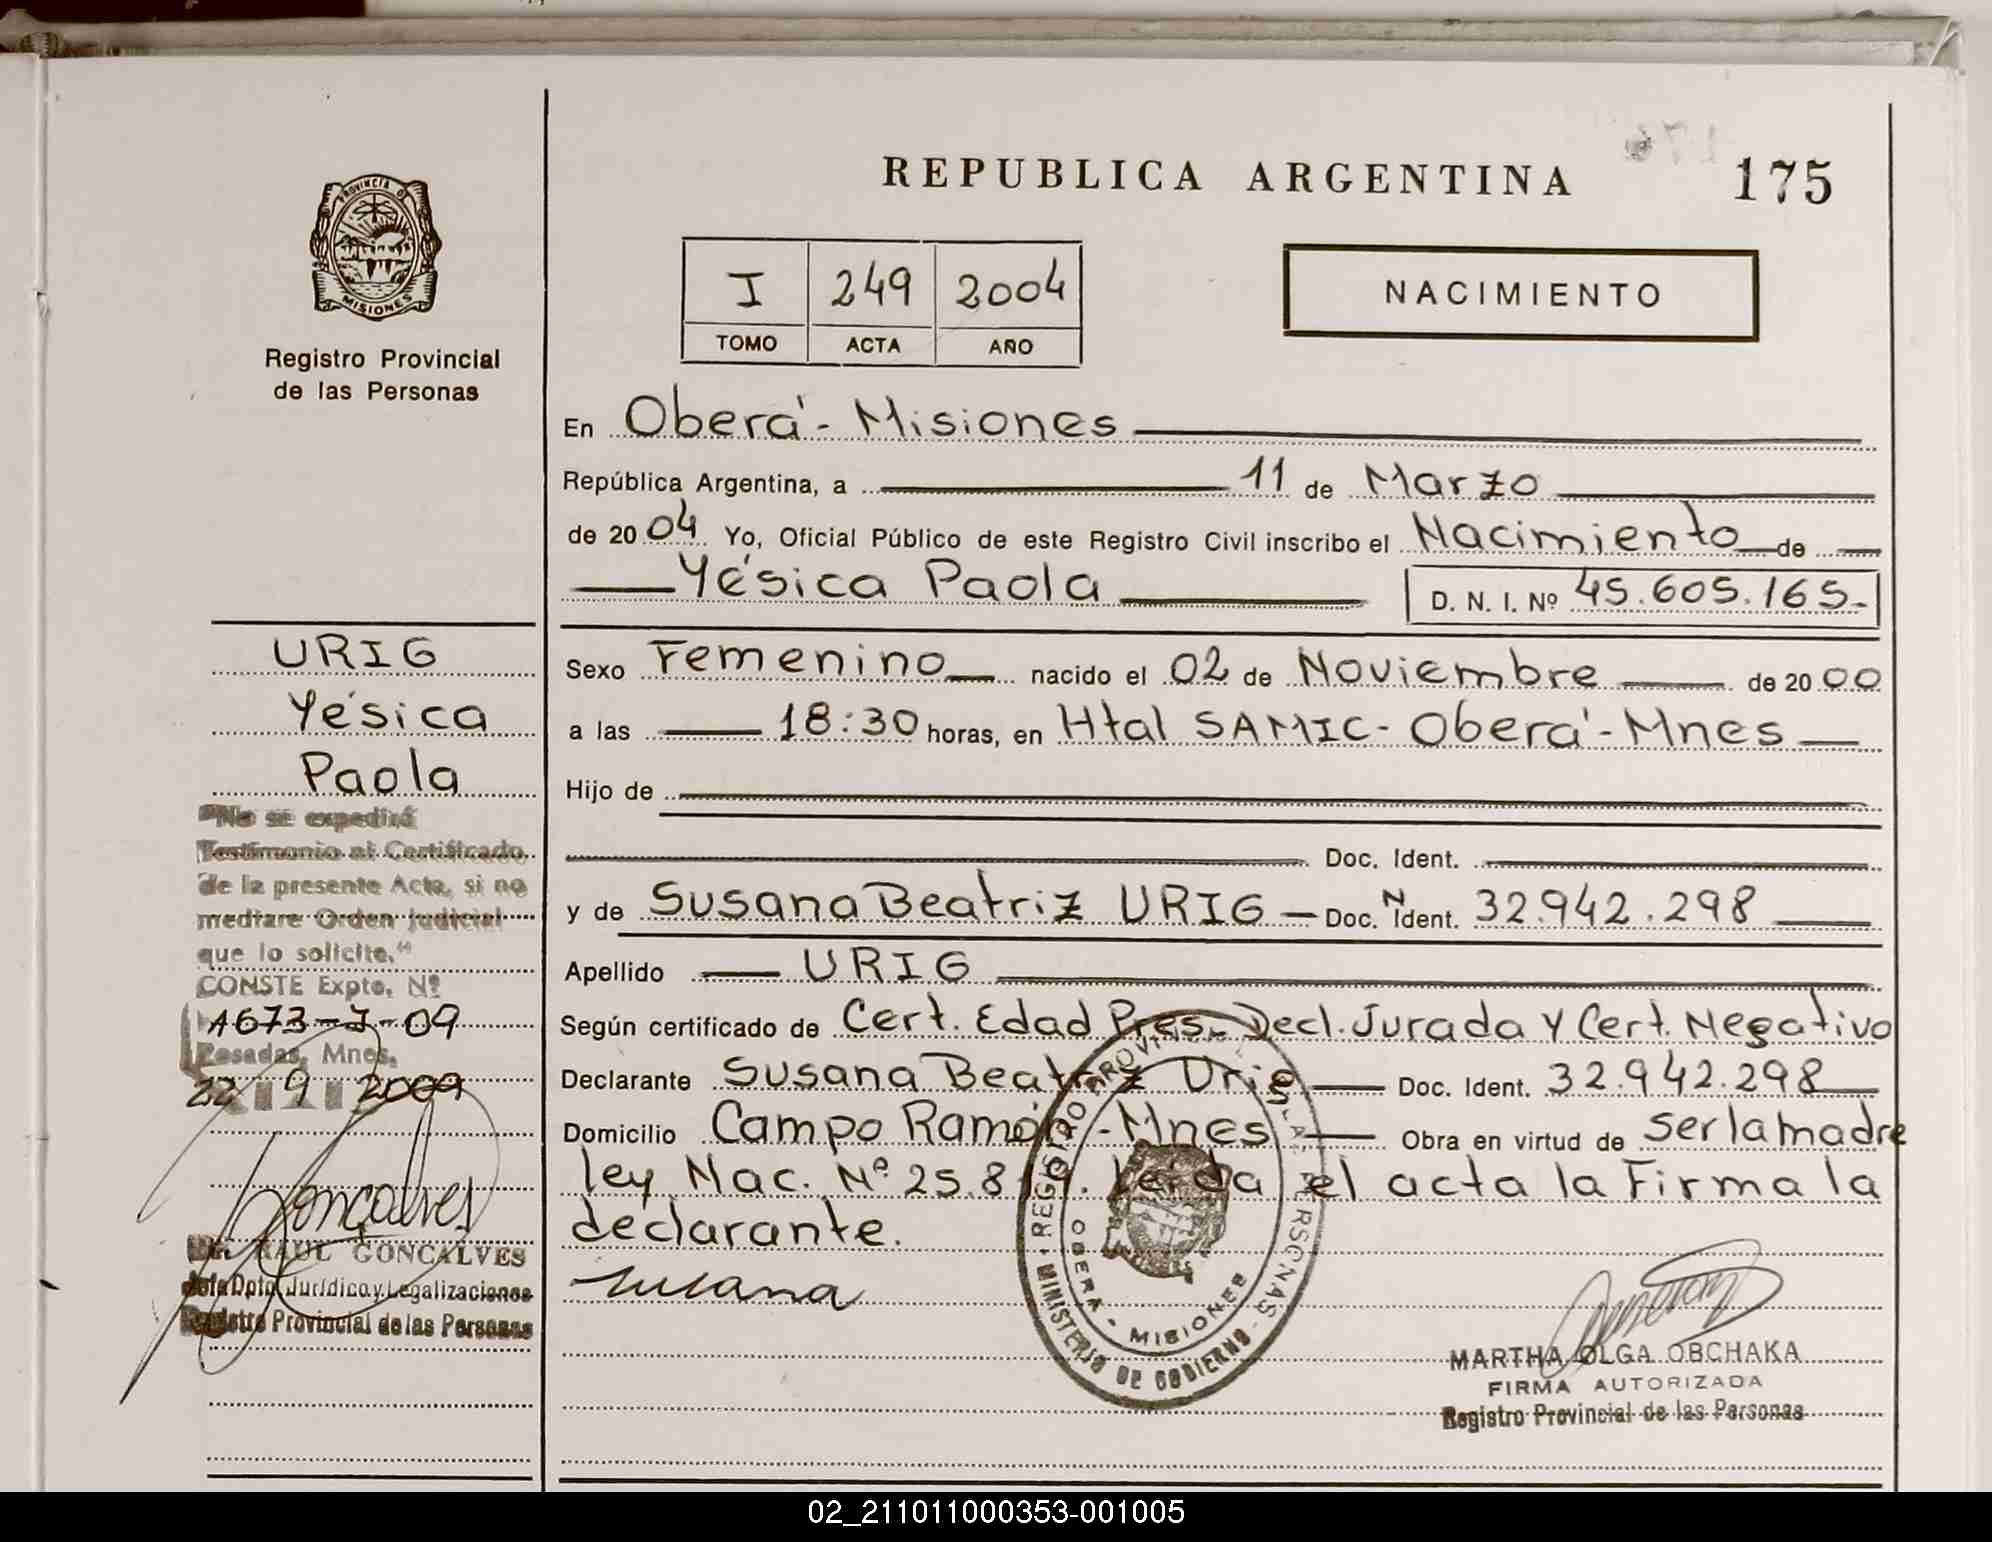 REPUBLICA ARGENTINA 175
I 249 2004
TOMO ACTA AÑO
NACIMIENTO
PROVINCIA DE
MISIONES
Registro Provincial
de las Personas
En Oberá - Misiones
República Argentina, a 11 de Marzo
de 2004 Yo, Oficial Público de este Registro Civil inscribo el Nacimiento de
Yésica Paola D. N. I. Nº 45.605.165.-
Sexo Femenino nacido el 02 de Noviembre de 2000
a las 18:30 horas, en Htal SAMIC - Oberá - Mnes
Hijo de
Doc. Ident.
y de Susana Beatriz URIG - Doc. N Ident. 32.942.298
Apellido URIG
Según certificado de Cert. Edad Pres. Decl. Jurada y Cert. Negativo
Declarante Susana Beatriz Urig Doc. Ident. 32.942.298
Domicilio Campo Ramón - Mnes - Obra en virtud de ser la madre
ley Nac. Nº 25.819. Leida el acta la Firma la
declarante.
Susana
REGISTRO PROVINCIAL DE LAS PERSONAS
MINISTERIO DE GOBIERNO
OBERA - MISIONES
MARTHA OLGA OBCHAKA
FIRMA AUTORIZADA
Registro Provincial de las Personas
URIG
Yésica
Paola
"No se expedirá
Testimonio ni Certificado
de la presente Acta, si no
mediare Orden Judicial
que lo solicite."
CONSTE Expte. Nº
1673-J-09
Posadas, Mnes,
22 9 2009
Goncalves
RAUL GONCALVES
Jefe Dpto. Jurídico y Legalizaciones
Registro Provincial de las Personas
02_211011000353-001005